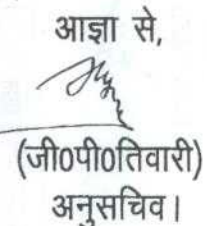 आज्ञा से,
(जी0पी0तिवारी)
अनुसचिव।